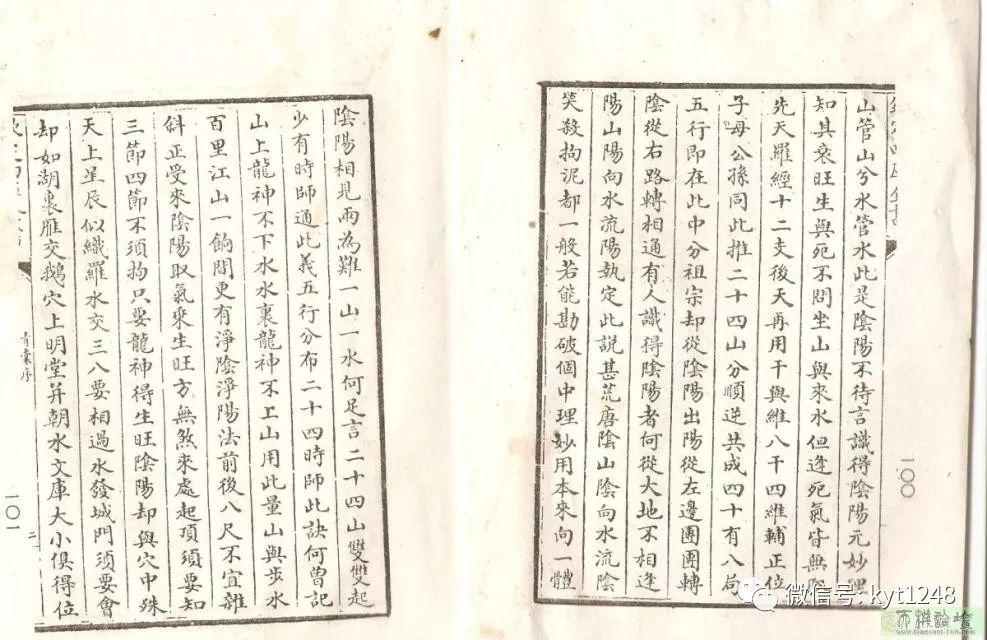 山管山兮水管水此是陰陽不待言識得陰陽元妙理
知其衰旺生與死不問坐山與來水但逢死氣皆無取
先天羅經十二支後天再用干與維八干四維輔正位
子母公孫同此推二十四山分順逆共成四十有八局
五行即在此中分祖宗却從陰陽出陽從左邊團團轉
陰從右路轉相通有人識得陰陽者何從大地不相逢
陽山陽向水流陽執定此說甚荒唐陰山陰向水流陰
笑殺拘泥都一般若能勘破個中理妙用本來向一體
一〇〇
陰陽相見兩為難一山一水何足言二十四山雙雙起
少有時師通此義五行分布二十四時師此訣何曾記
山上龍神不下水水裏龍神不上山用此量山與步水
百里江山一餉間更有淨陰淨陽法前後八尺不宜雜
斜正受來陰陽取氣乘生旺方無煞來處起頂須要知
三節四節不須拘只要龍神得生旺陰陽却與穴中殊
天上星辰似織羅水交三八要相過水發城門須要會
却如湖裏雁交鵝穴上明堂并朝水文庫大小俱得位
青囊序
二
一〇一
微信号: kyt1248